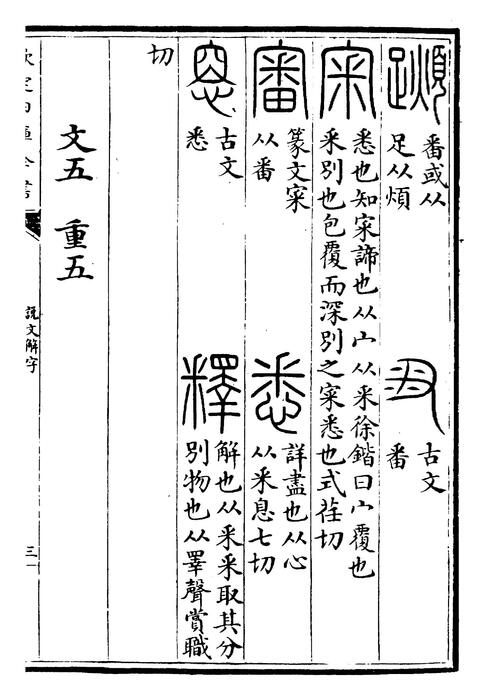 番或从
足从煩
古文
番
宷
悉也知宷諦也从宀从釆徐鍇曰宀覆也
釆别也包覆而深别之宷悉也式荏切
審
篆文宷
从番
悉
詳盡也从心
从釆息七切
古文
悉
釋
解也从釆釆取其分
别物也从睪聲賞職
切
文五 重五
欽定四庫全書
說文解字
三